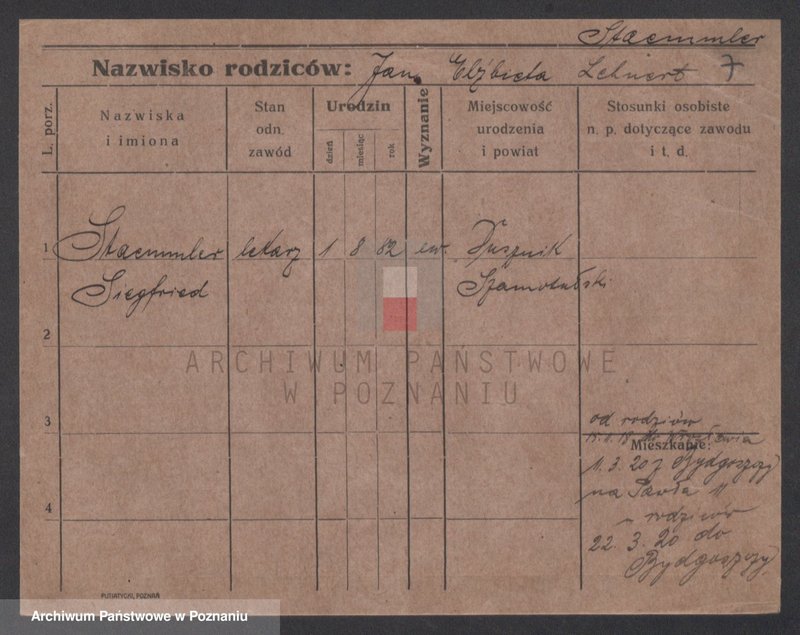 Staemmler
Nazwisko rodziców: Jan Elżbieta Lehnert 7
L. porz.
Nazwiska
i imiona
Stan
odn.
zawód
Urodzin
dzień
miesiąc
rok
Wyznanie
Miejscowość
urodzenia
i powiat
Stosunki osobiste
n. p. dotyczące zawodu
i t. d.
1 Staemmler lekarz 1 8 82 ew. Dusznik
Siegfried Szamotulski
2
ARCHIWUM PAŃSTWOWE
W POZNANIU
3
od rodziców
18 do Wrocławia
Mieszkanie:
11. 3. 20 z Bydgoszczy
na Pawła 11
4
u rodziców
22. 3. 20 do
Bydgoszczy
PUTIATYCKI, POZNAŃ
Archiwum Państwowe w Poznaniu